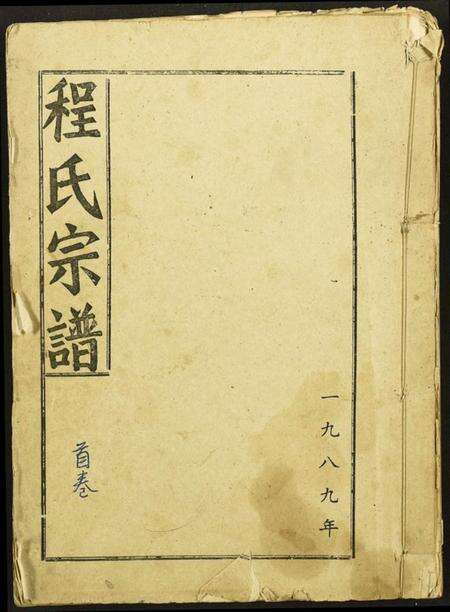 程氏宗譜
首卷
一九八九年